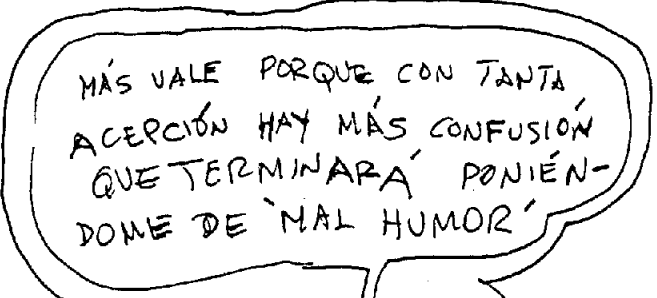 MÁS VALE PORQUE CON TANTA
ACEPCIÓN HAY MÁS CONFUSIÓN
QUE TERMINARÁ PONIÉN-
DOME DE 'MAL HUMOR'